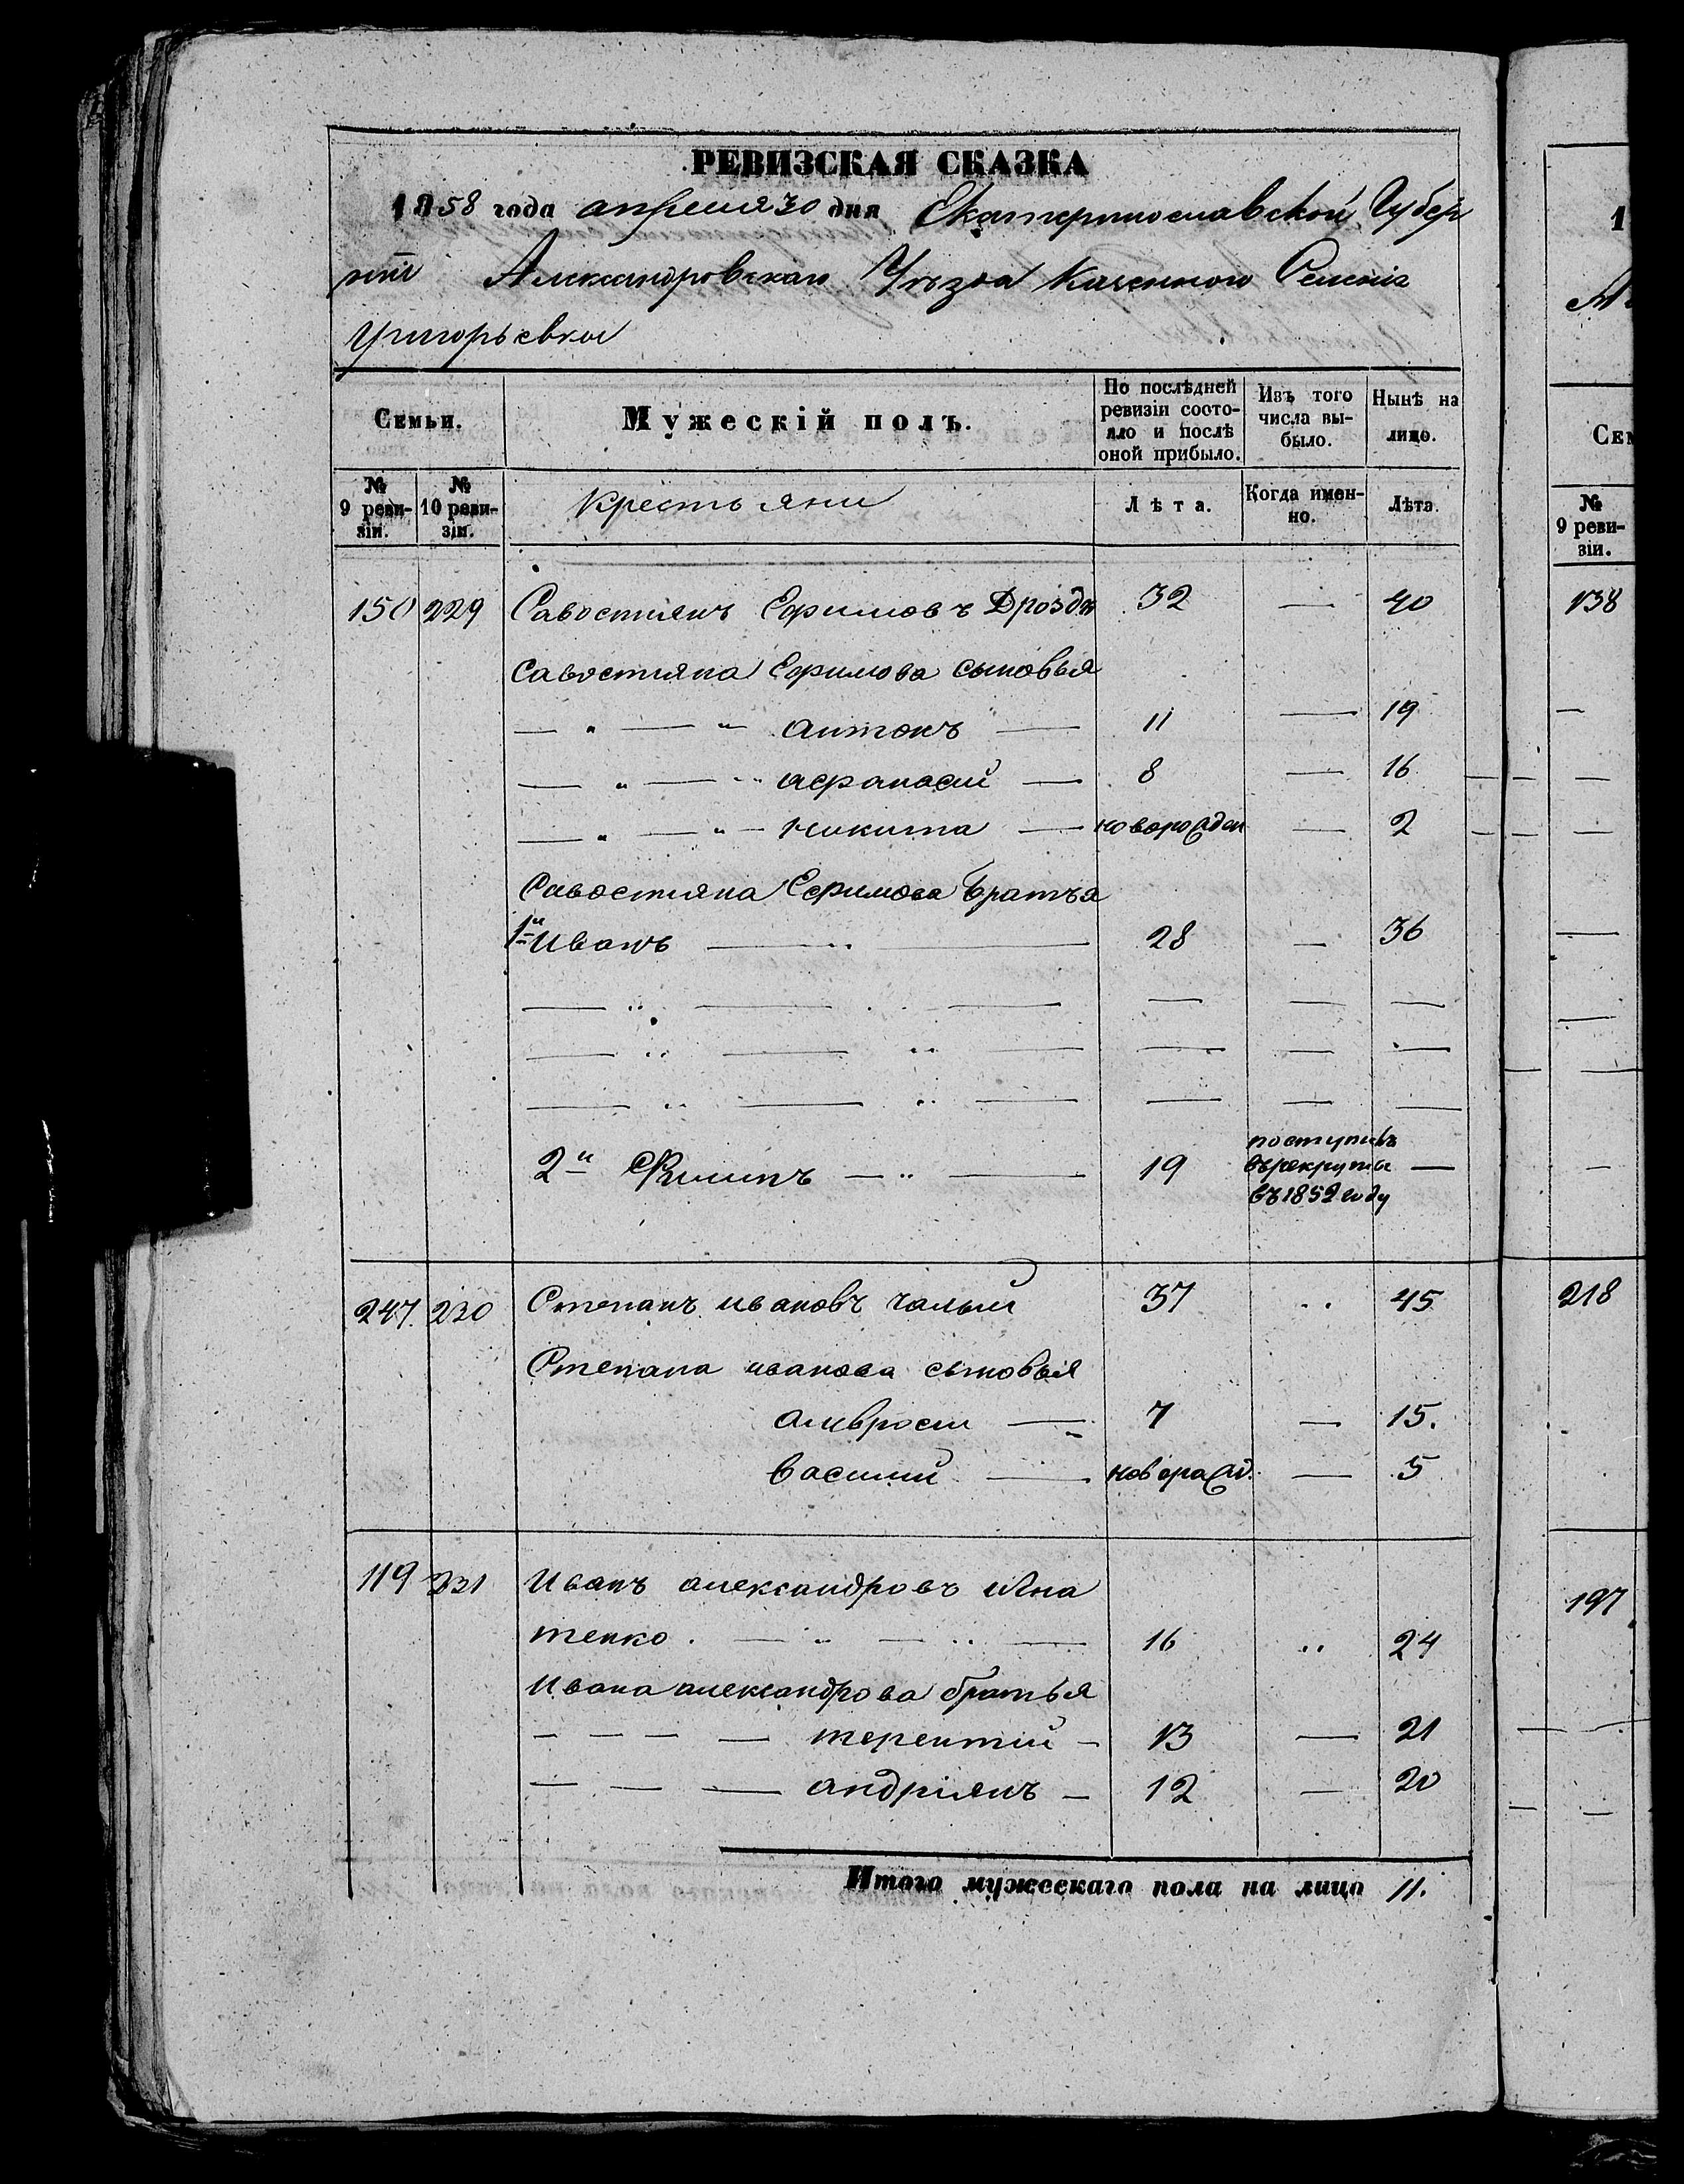 РЕВИЗСКАЯ СКАЗКА
1858 года апреля 30 дня Екатеринославской Губер
нiи Александровскаго Уѣзда Казенного Селенiя
Григорьевки
Семьи.
Мужескiй полъ.
По послѣдней ревизiи состояло и послѣ оной прибыло.
Изъ того числа выбыло.
Нынѣ на лицо.
№ 9 ревизiи.
№ 10 ревизiи.
Крестьяни
Лѣта.
Когда именно.
Лѣта.
150 229 Савостиянъ Ефимовъ Дроздъ 32 — 40
Савостияна Ефимова сыновья
— " — " антонъ — 11 — 19
— " — " афанасий — 8 — 16
— " — " никита — новорожден — 2
Савостияна Ефимова братья
1й Иванъ — " — 28 — 36
2й Филипъ — " — 19 поступилъ —
въ рекруты
въ 1852 году
247. 230 Степанъ ивановъ чалый 37 " 45
Степана иванова сыновья
амвросий — 7 — 15.
василий — новорожд. — 5
119 231 Иванъ александровъ
тенко. — " — " — 16 " 24
Ивана александрова братья
— — — — терентий — 13 — 21
— — — андрiянъ — 12 — 20
Итого мужескаго пола на лицо 11.
1
Сем
№ 9 ревизiи.
138
218
197